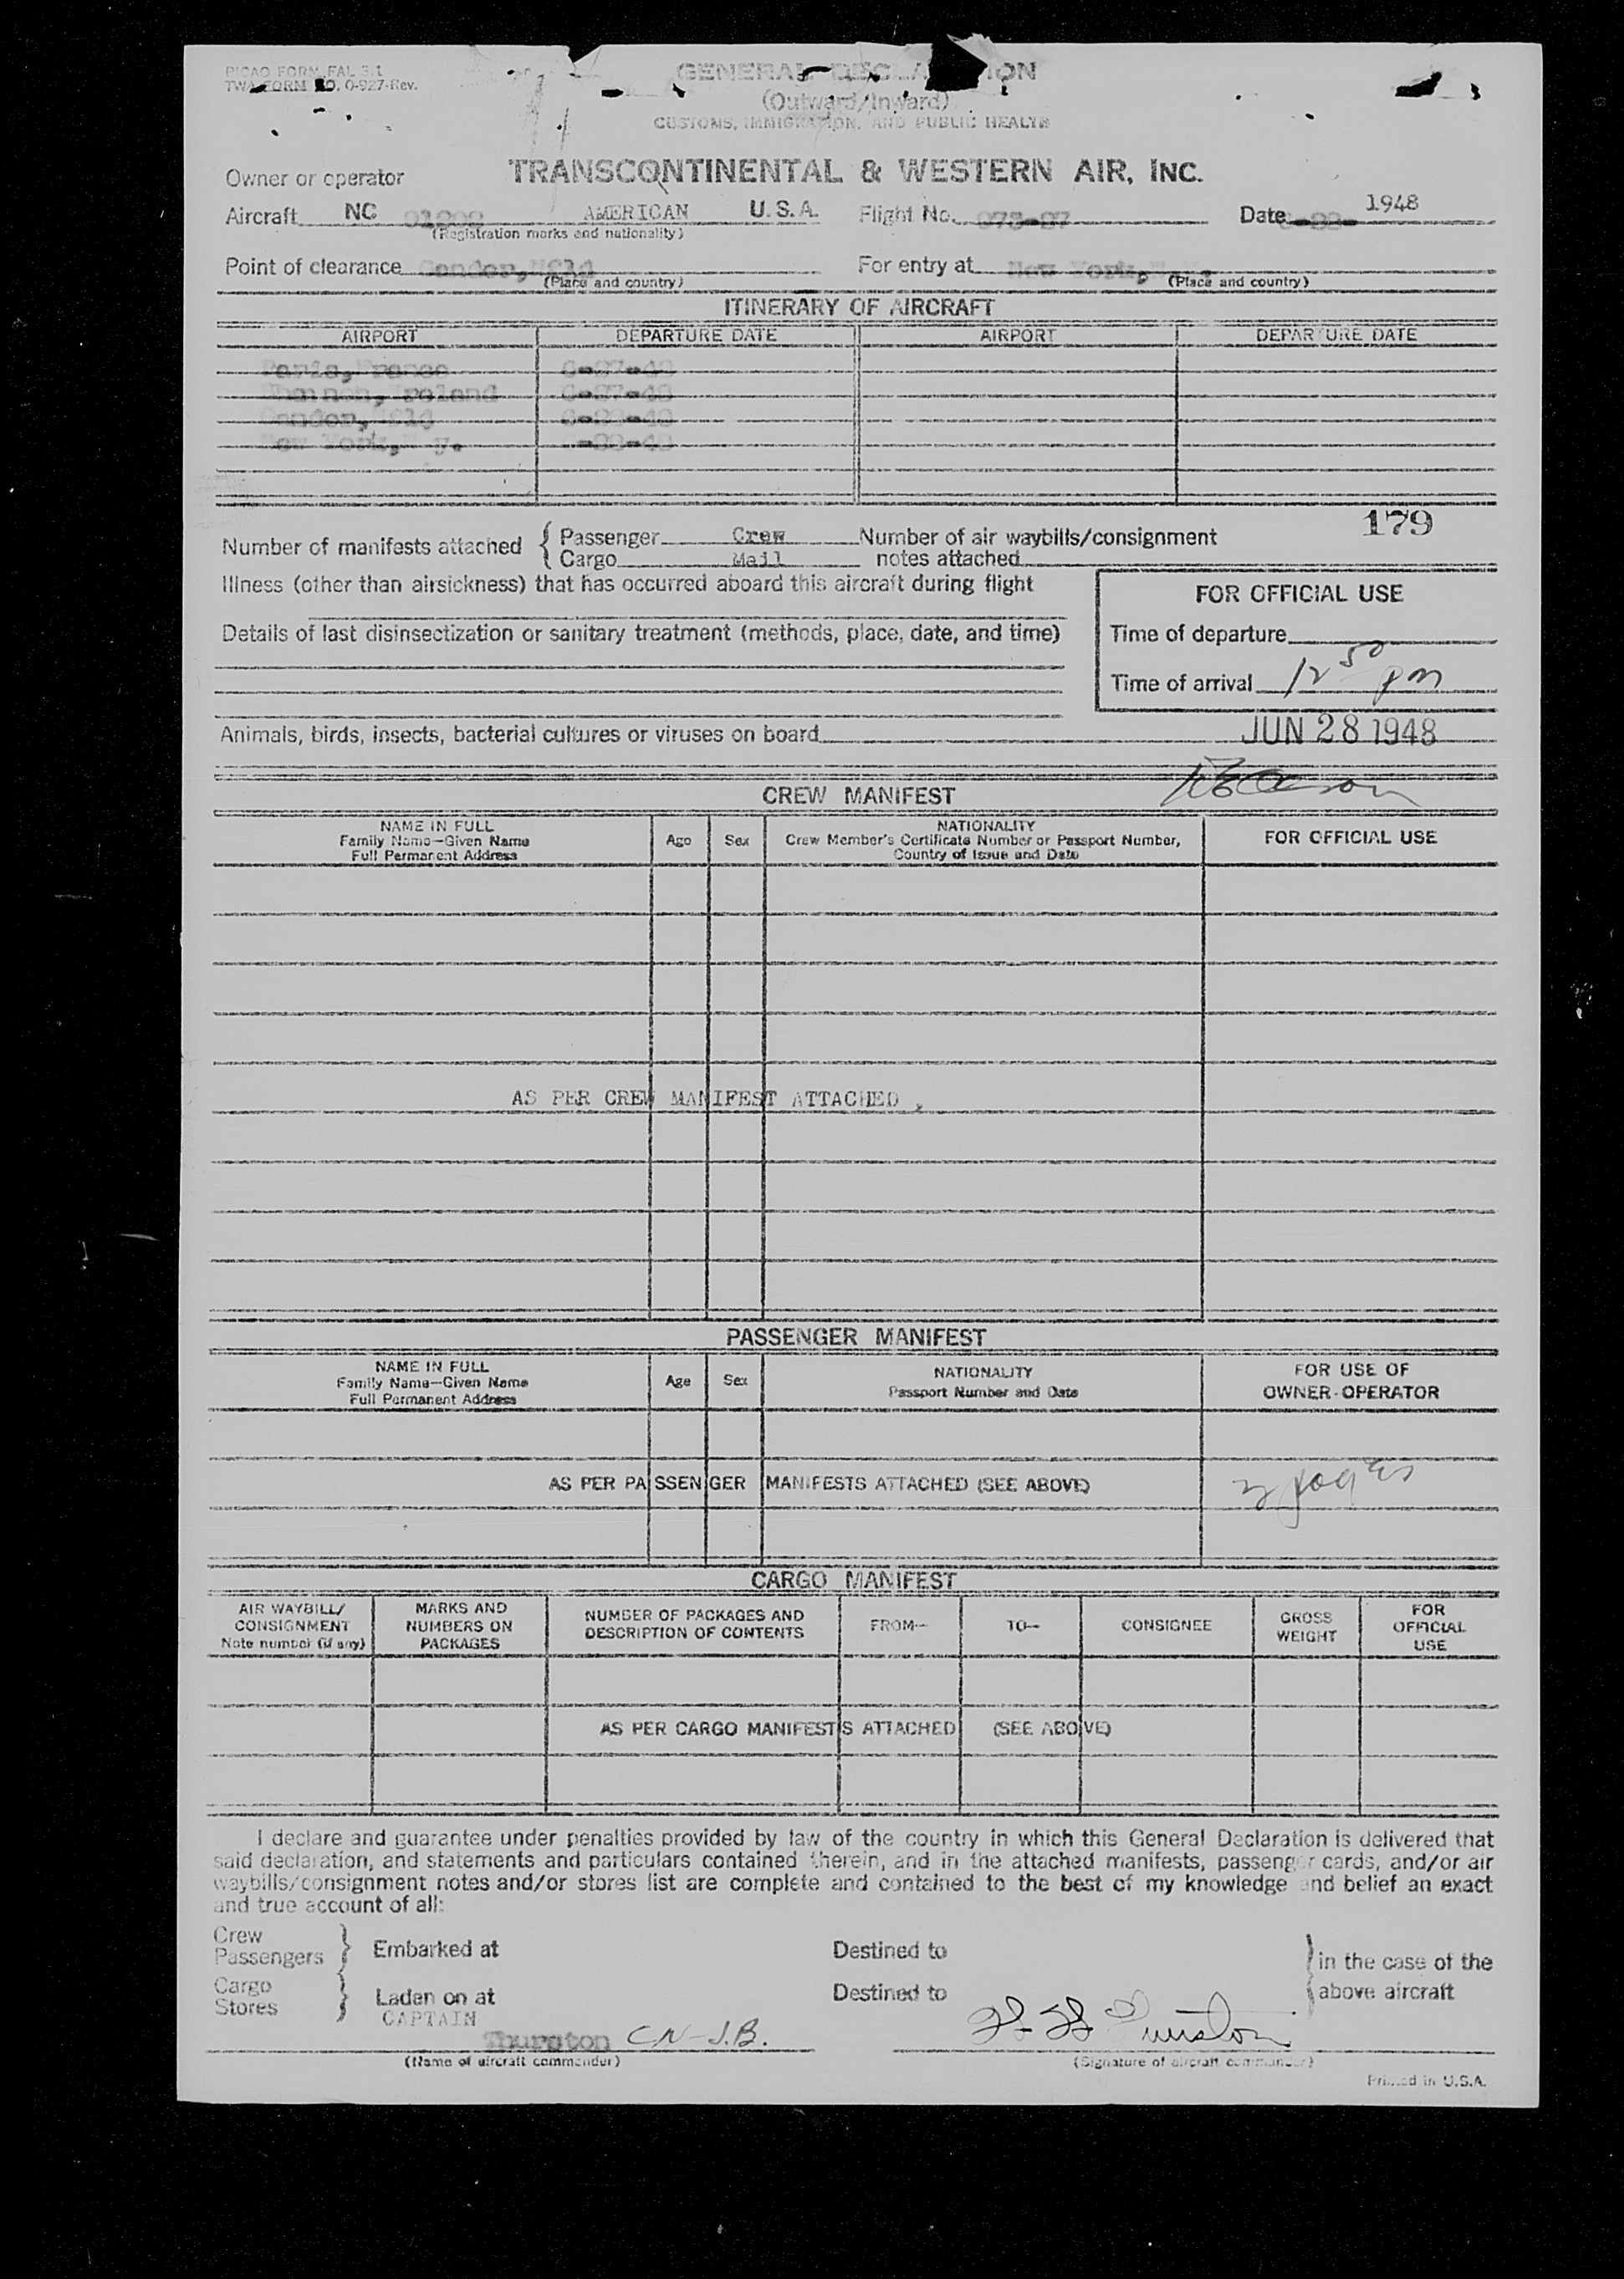 PICAO FORM FAL 3.1
TWA FORM NO. 0-927-Rev.
GENERAL DECLARATION
(Outward/Inward)
CUSTOMS, IMMIGRATION, AND PUBLIC HEALTH
Owner or operator TRANSCONTINENTAL & WESTERN AIR, INC.
Aircraft NC AMERICAN U.S.A. Flight No. Date 1948
(Registration marks and nationality)
Point of clearance Gander, Nfld For entry at New York,
(Place and country) (Place and country)
ITINERARY OF AIRCRAFT
AIRPORT DEPARTURE DATE AIRPORT DEPARTURE DATE
Paris, France 6-27-48
Shannon, Ireland 6-27-48
Gander, Nfld
New York, N.y.
179
Number of manifests attached { Passenger Crew Number of air waybills/consignment
Cargo Mail notes attached
Illness (other than airsickness) that has occurred aboard this aircraft during flight
FOR OFFICIAL USE
Details of last disinsectization or sanitary treatment (methods, place, date, and time)
Time of departure
Time of arrival 12 50 pm
Animals, birds, insects, bacterial cultures or viruses on board JUN 28 1948
CREW MANIFEST
NAME IN FULL
Family Name—Given Name
Full Permanent Address
Age Sex
NATIONALITY
Crew Member's Certificate Number or Passport Number,
Country of Issue and Date
FOR OFFICIAL USE
AS PER CREW MANIFEST ATTACHED.
PASSENGER MANIFEST
NAME IN FULL
Family Name—Given Name
Full Permanent Address
Age Sex
NATIONALITY
Passport Number and Date
FOR USE OF
OWNER-OPERATOR
AS PER PASSENGER MANIFESTS ATTACHED (SEE ABOVE)
CARGO MANIFEST
AIR WAYBILL/
CONSIGNMENT
Note number (if any)
MARKS AND
NUMBERS ON
PACKAGES
NUMBER OF PACKAGES AND
DESCRIPTION OF CONTENTS
FROM— TO— CONSIGNEE
GROSS
WEIGHT
FOR
OFFICIAL
USE
AS PER CARGO MANIFESTS ATTACHED (SEE ABOVE)
I declare and guarantee under penalties provided by law of the country in which this General Declaration is delivered that
said declaration, and statements and particulars contained therein, and in the attached manifests, passenger cards, and/or air
waybills/consignment notes and/or stores list are complete and contained to the best of my knowledge and belief an exact
and true account of all:
Crew
Passengers } Embarked at Destined to } in the case of the
Cargo
Stores } Laden on at Destined to above aircraft
CAPTAIN
Thurston CN-J.B.
(Name of aircraft commander) (Signature of aircraft commander)
Printed in U.S.A.